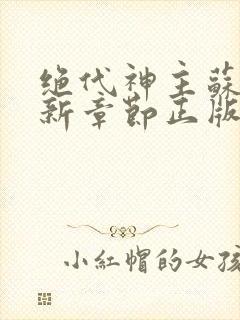 绝代神主蘇
新章節正版
小紅帽的女孩